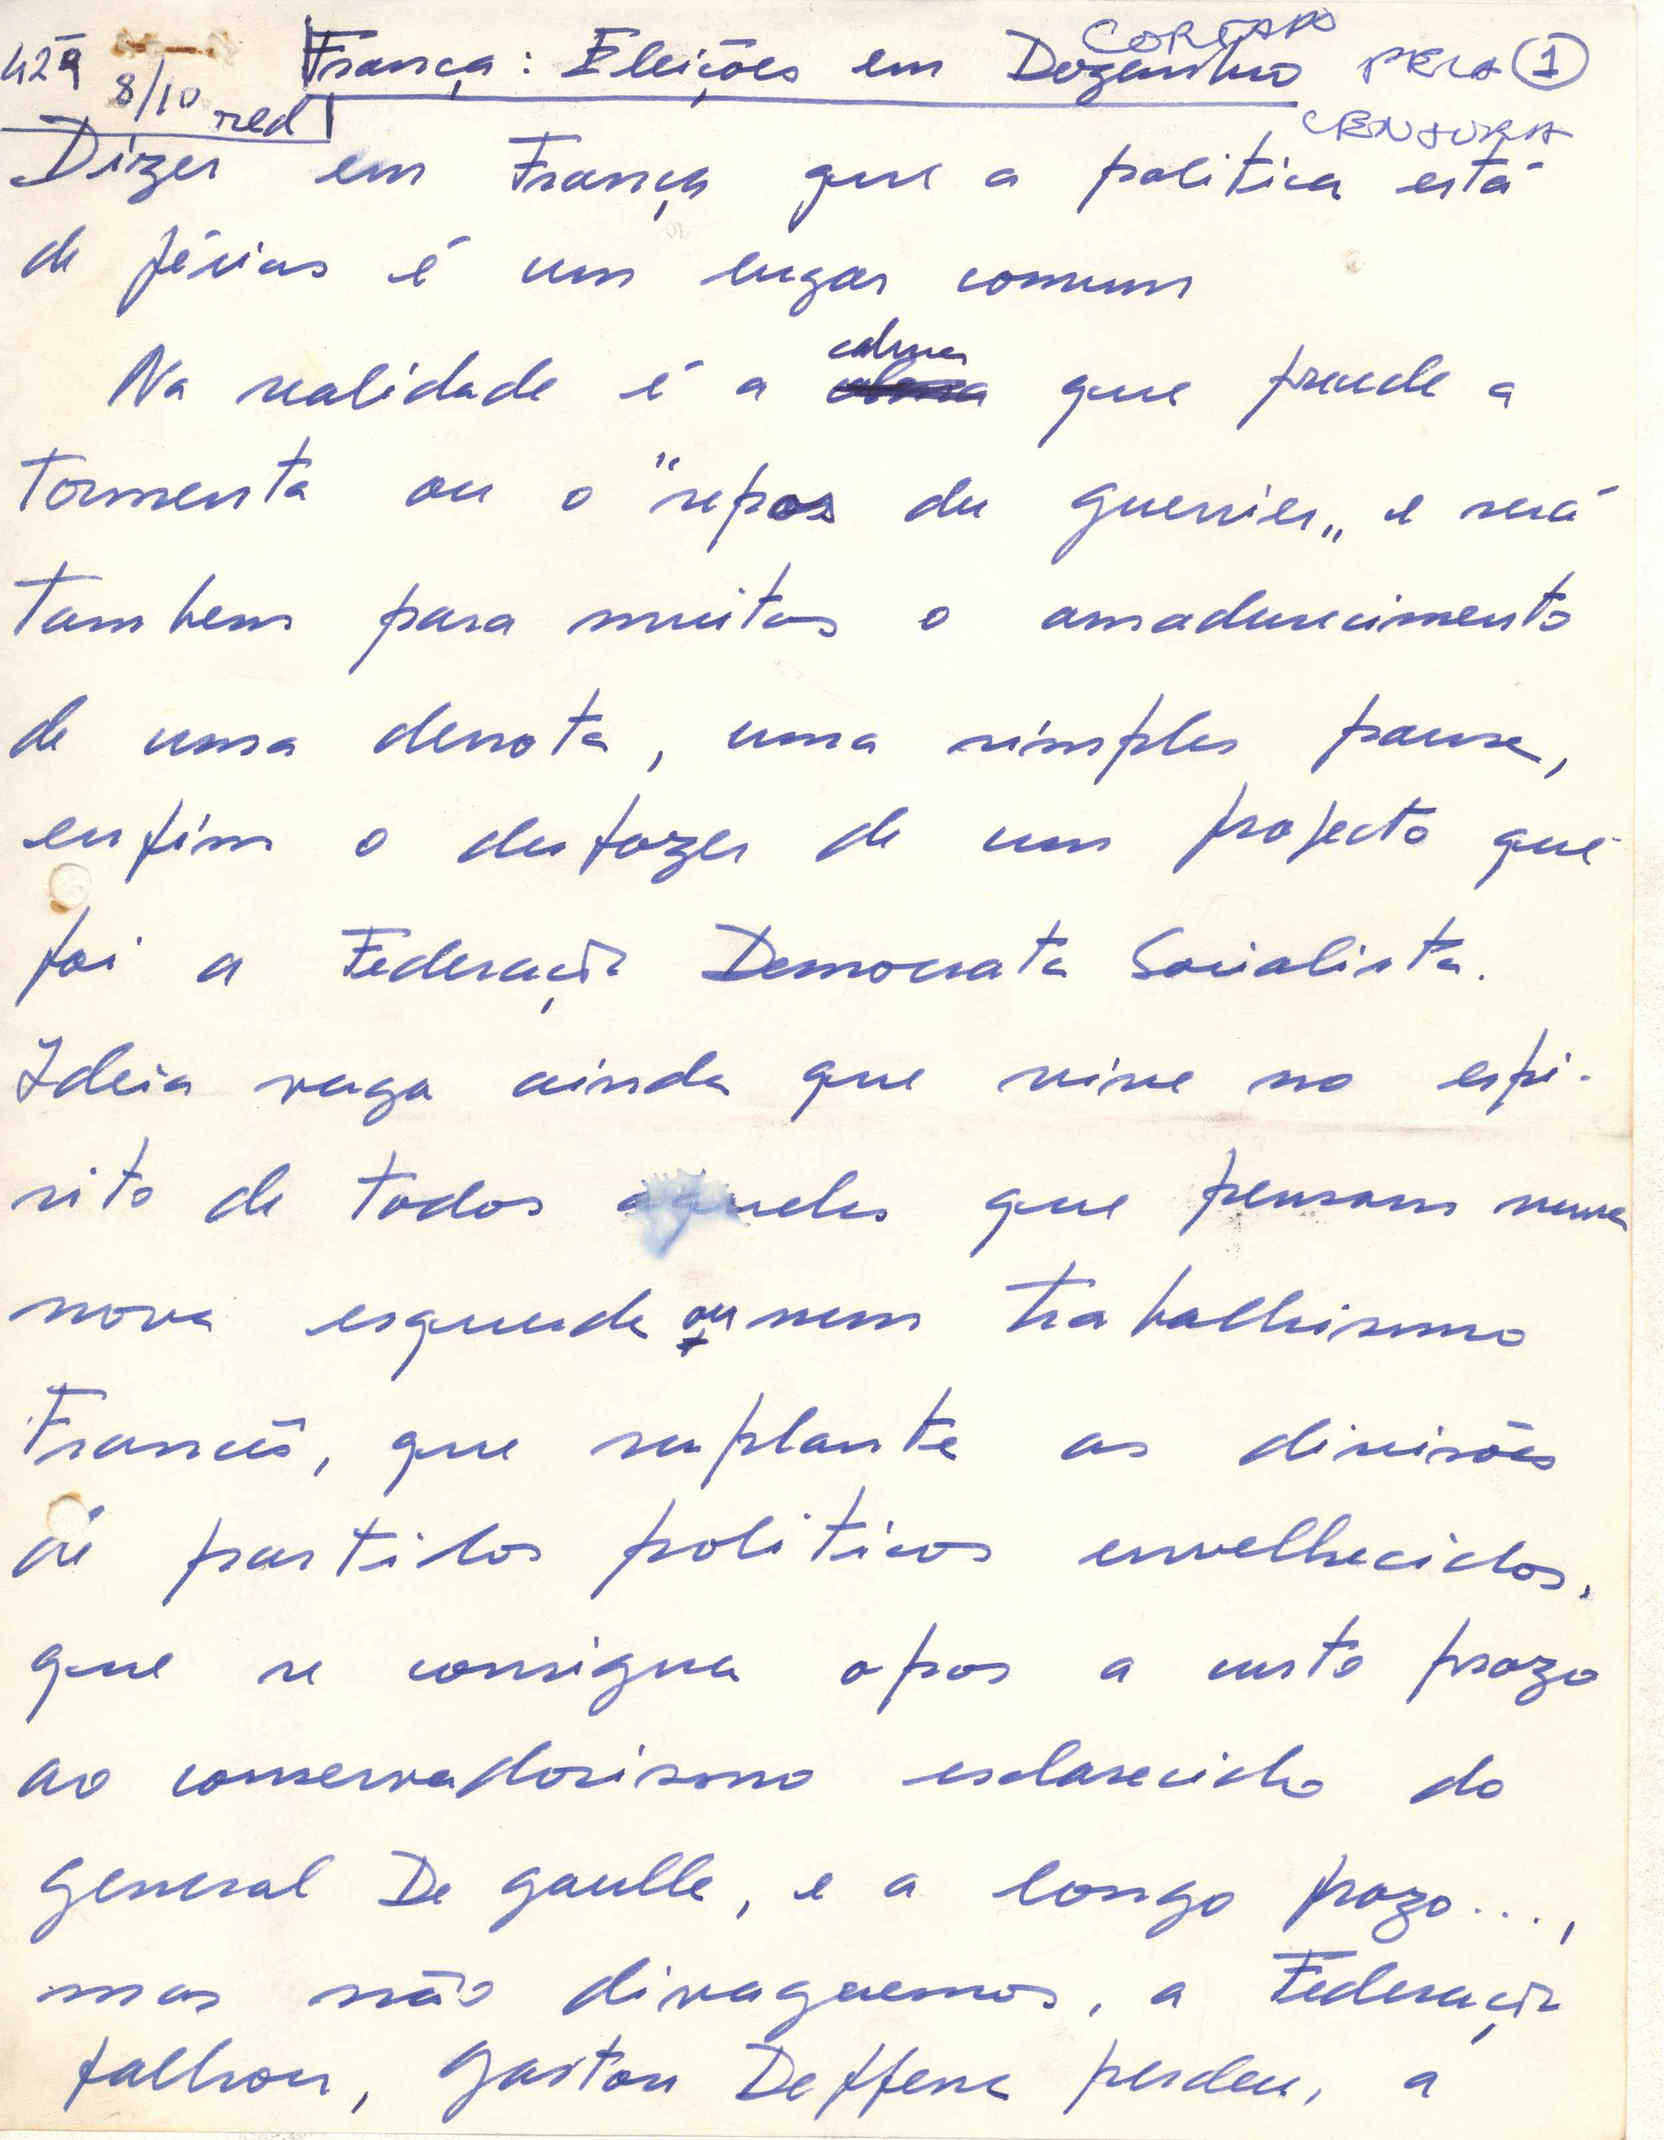 42ª França: Eleições em Dezembro CORTADO PELA CENSURA 1
8/10 red
Dizer em França que a politica está
de férias é um lugar comum
Na realidade é a calma que precede a
tormenta ou o "repos du guerrier" e será
tambem para muitos o amadurecimento
de uma derrota, uma simples pausa,
enfim o desfazer de um projecto que
foi a Federação Democrata Socialista.
Ideia vaga ainda que vive no espi-
rito de todos aqueles que pensam numa
nova esquerda ou num trabalhismo
Francês, que suplante as divisões
de partidos politicos envelhecidos,
que se consigua opor a curto prazo
ao conservadorismo esclarecido do
general De gaulle, e a longo prazo...,
mas não divaguemos, a Federação
falhou, Gaston Defferre perdeu, a